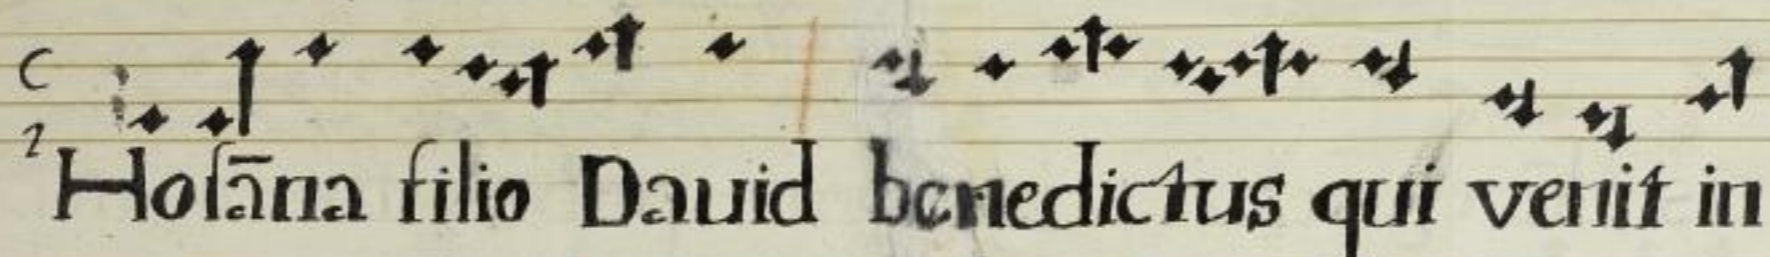 Hoſāna filio Dauid benedictus qui venit in